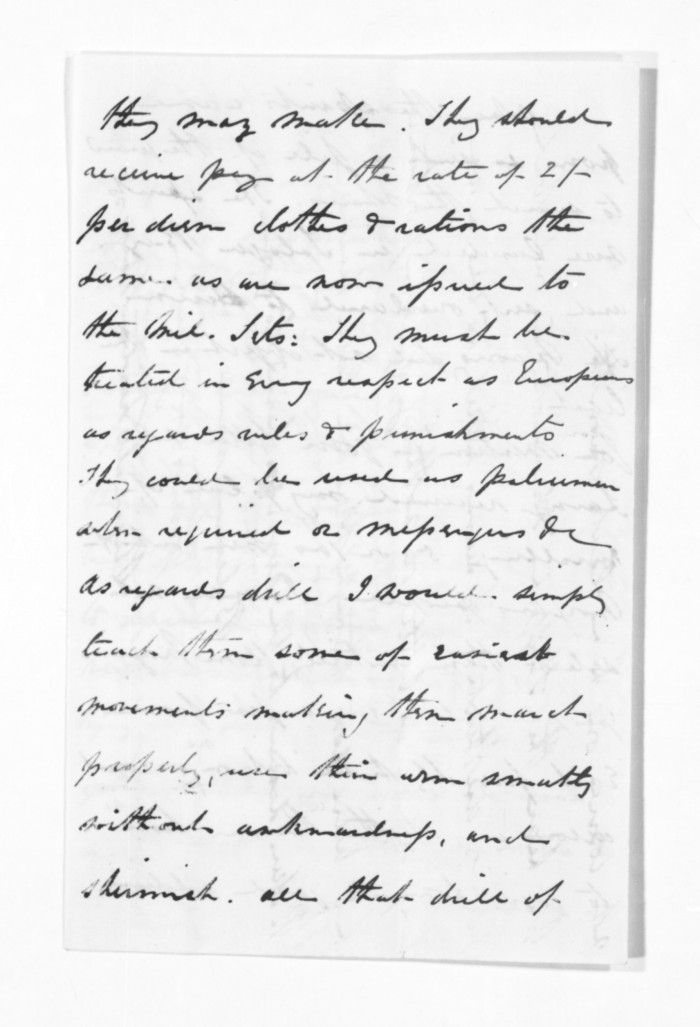 they may make. They should
receive pay at the rate of 2/-
per diem clothes & rations the
same as are now issued to
the Mil. Setts: They must be
treated in Every respect as Europeans
as regards rules & punishments
They could be used as policemen
when required or messengers &c
As regards drill I would simply
teach them some of easiest
movements making them march
properly, use their arms smartly
without awkwardness, and
skirmish. all that drill of